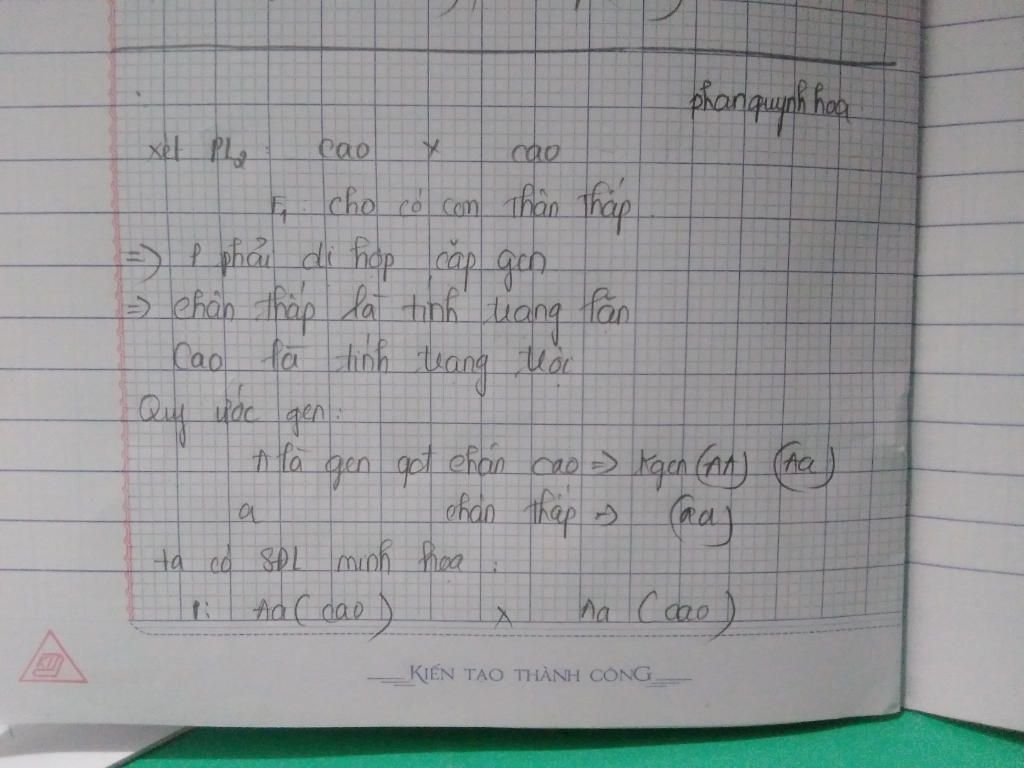 phanquynhhoa
xét PL2: cao x cao
F1: cho có con thân thấp
=> P phải dị hợp cặp gen
=> chân thấp là tính trạng lặn
Cao là tính trạng trội
Quy ước gen:
A là gen qđ chân cao => Kgen (AA) (Aa)
a chân thấp => (aa)
ta có SĐL minh họa:
P: Aa (cao) x Aa (cao)
KIẾN TẠO THÀNH CÔNG